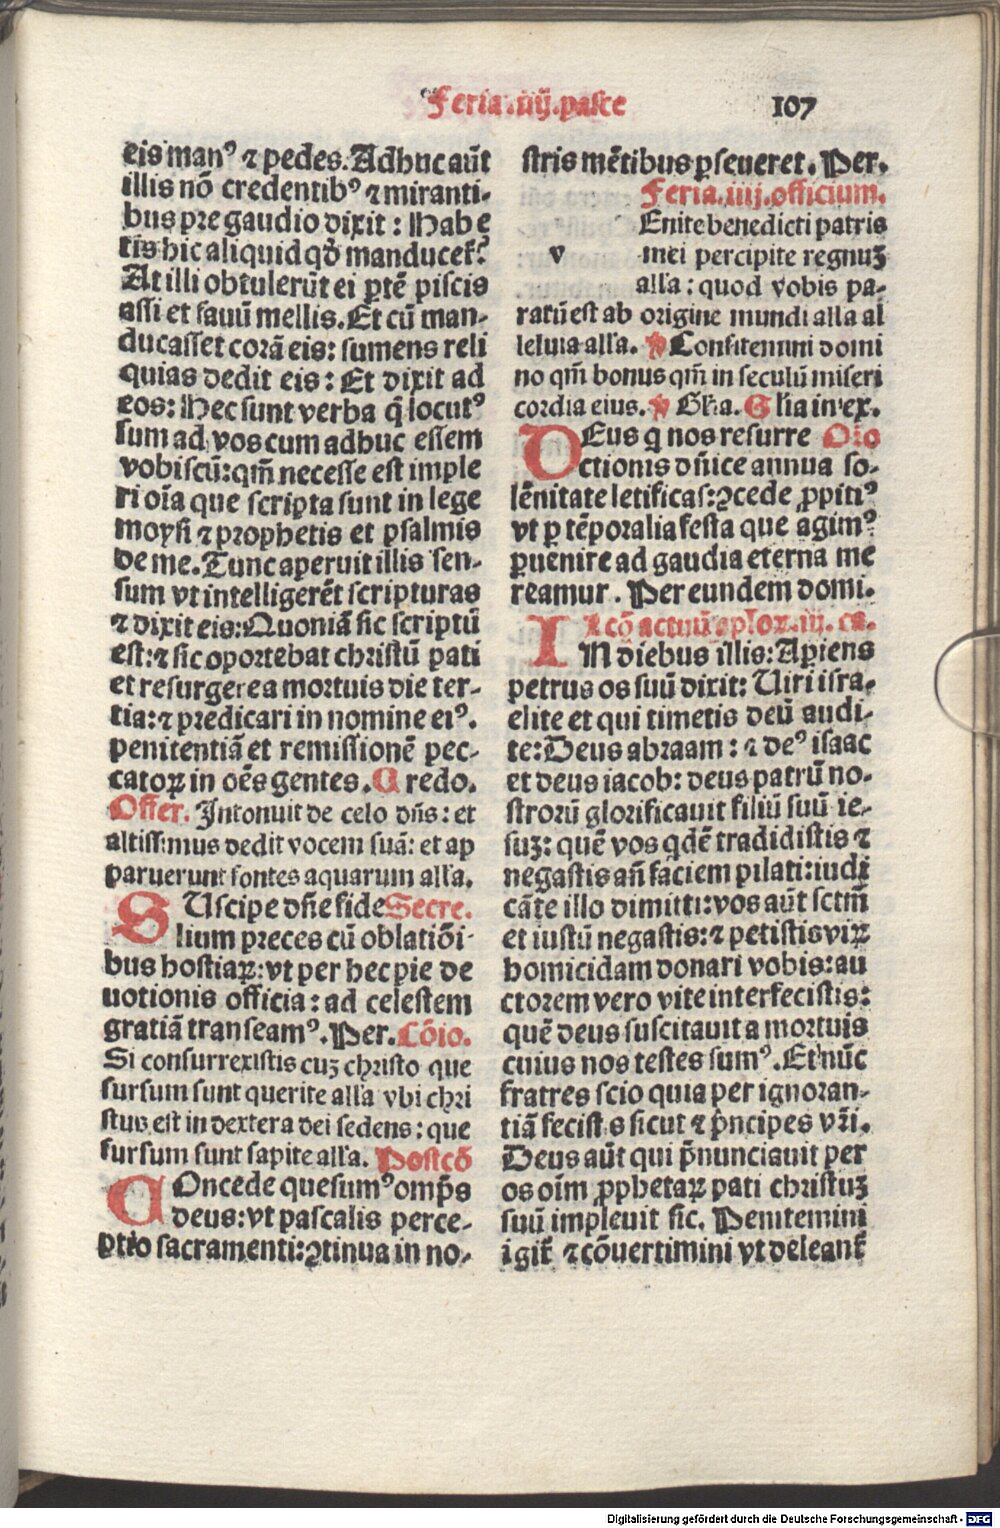 Feria.iiij.pasce 107
eis manꝰ ⁊ pedes. Adhuc aūt
illis nō credentibꝰ ⁊ miranti-
bus pre gaudio dixit : Habe
tis hic aliquid qđ manducet̄?
At illi obtulerūt ei ꝑtē piscis
assi et fauū mellis. Et cū man-
ducasset corā eis: sumens reli
quias dedit eis: Et dixit ad
eos: Hec sunt verba q̄ locutꝰ
sum ad vos cum adhuc essem
vobiscū: qm̄ necesse est imple
ri oīa que scripta sunt in lege
moysi ⁊ prophetis et psalmis
de me. Tunc aperuit illis sen-
sum vt intelligerēt scripturas
⁊ dixit eis: Quoniā sic scriptū
est: ⁊ sic oportebat christū pati
et resurgere a mortuis die ter-
tia: ⁊ predicari in nomine eiꝰ.
penitentiā et remissionē pec-
catoꝝ in oēs gentes. Credo.
Offer. Intonuit de celo dn̄s: et
altissimus dedit vocem suā: et ap
paruerunt fontes aquarum all'a.
SUscipe dn̄e fide Secre.
lium preces cū oblatiōi-
bus hostiaꝝ: vt per hec pie de
uotionis officia: ad celestem
gratiā transeamꝰ. Per. Cōio.
Si consurrexistis cuȝ christo que
sursum sunt querite all'a vbi chri
stus est in dextera dei sedens: que
sursum sunt sapite all'a. Postcō
COncede quesumꝰ omp̄s
deus: vt pascalis perce-
ptio sacramenti: ꝯtinua in no-
stris mētibus ꝑseueret. Per.
Feria.iiij.officium.
Enite benedicti patris
v mei percipite regnuȝ
all'a: quod vobis pa-
ratū est ab origine mundi alla al
leluia all'a. ps Confitemini domi
no qm̄ bonus qm̄ in seculū miseri
cordia eius. ℣ Gl'ia. Gl'ia in ex.
DEus q̄ nos resurre Oīo
ctionis dn̄ice annua so-
lēnitate letificas: ꝯcede ꝓpitiꝰ
vt ꝑ tēporalia festa que agimꝰ
ꝑuenire ad gaudia eterna me
reamur. Per eundem domi.
Lcō actuū aplox. iij. ca.
IN diebus illis: Apiens
petrus os suū dixit: Uiri isra-
elite et qui timetis deū audi-
te: Deus abraam: ⁊ deꝰ isaac
et deus iacob: deus patrū no-
strorū glorificauit filiū suū ie-
suȝ: quē vos qdē tradidistis ⁊
negastis an̄ faciem pilati: iudi
cāte illo dimitti: vos aūt sctm̄
et iustū negastis: ⁊ petistis viꝝ
homicidam donari vobis: au
ctorem vero vite interfecistis:
quē deus suscitauit a mortuis
cuius nos testes sumꝰ. Et nūc
fratres scio quia per ignoran-
tiā fecistis sicut ⁊ p̄ncipes vr̄i.
Deus aūt qui p̄nunciauit per
os oīm ꝓphetaꝝ pati christuȝ
suū impleuit sic. Penitemini
igit̄ ⁊ cōuertimini vt deleant̄
Digitalisierung gefördert durch die Deutsche Forschungsgemeinschaft - DFG